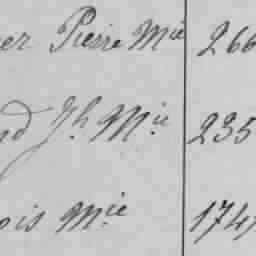 er Pierre Mie 266
nd Jh Mie 235
ois Mie 174